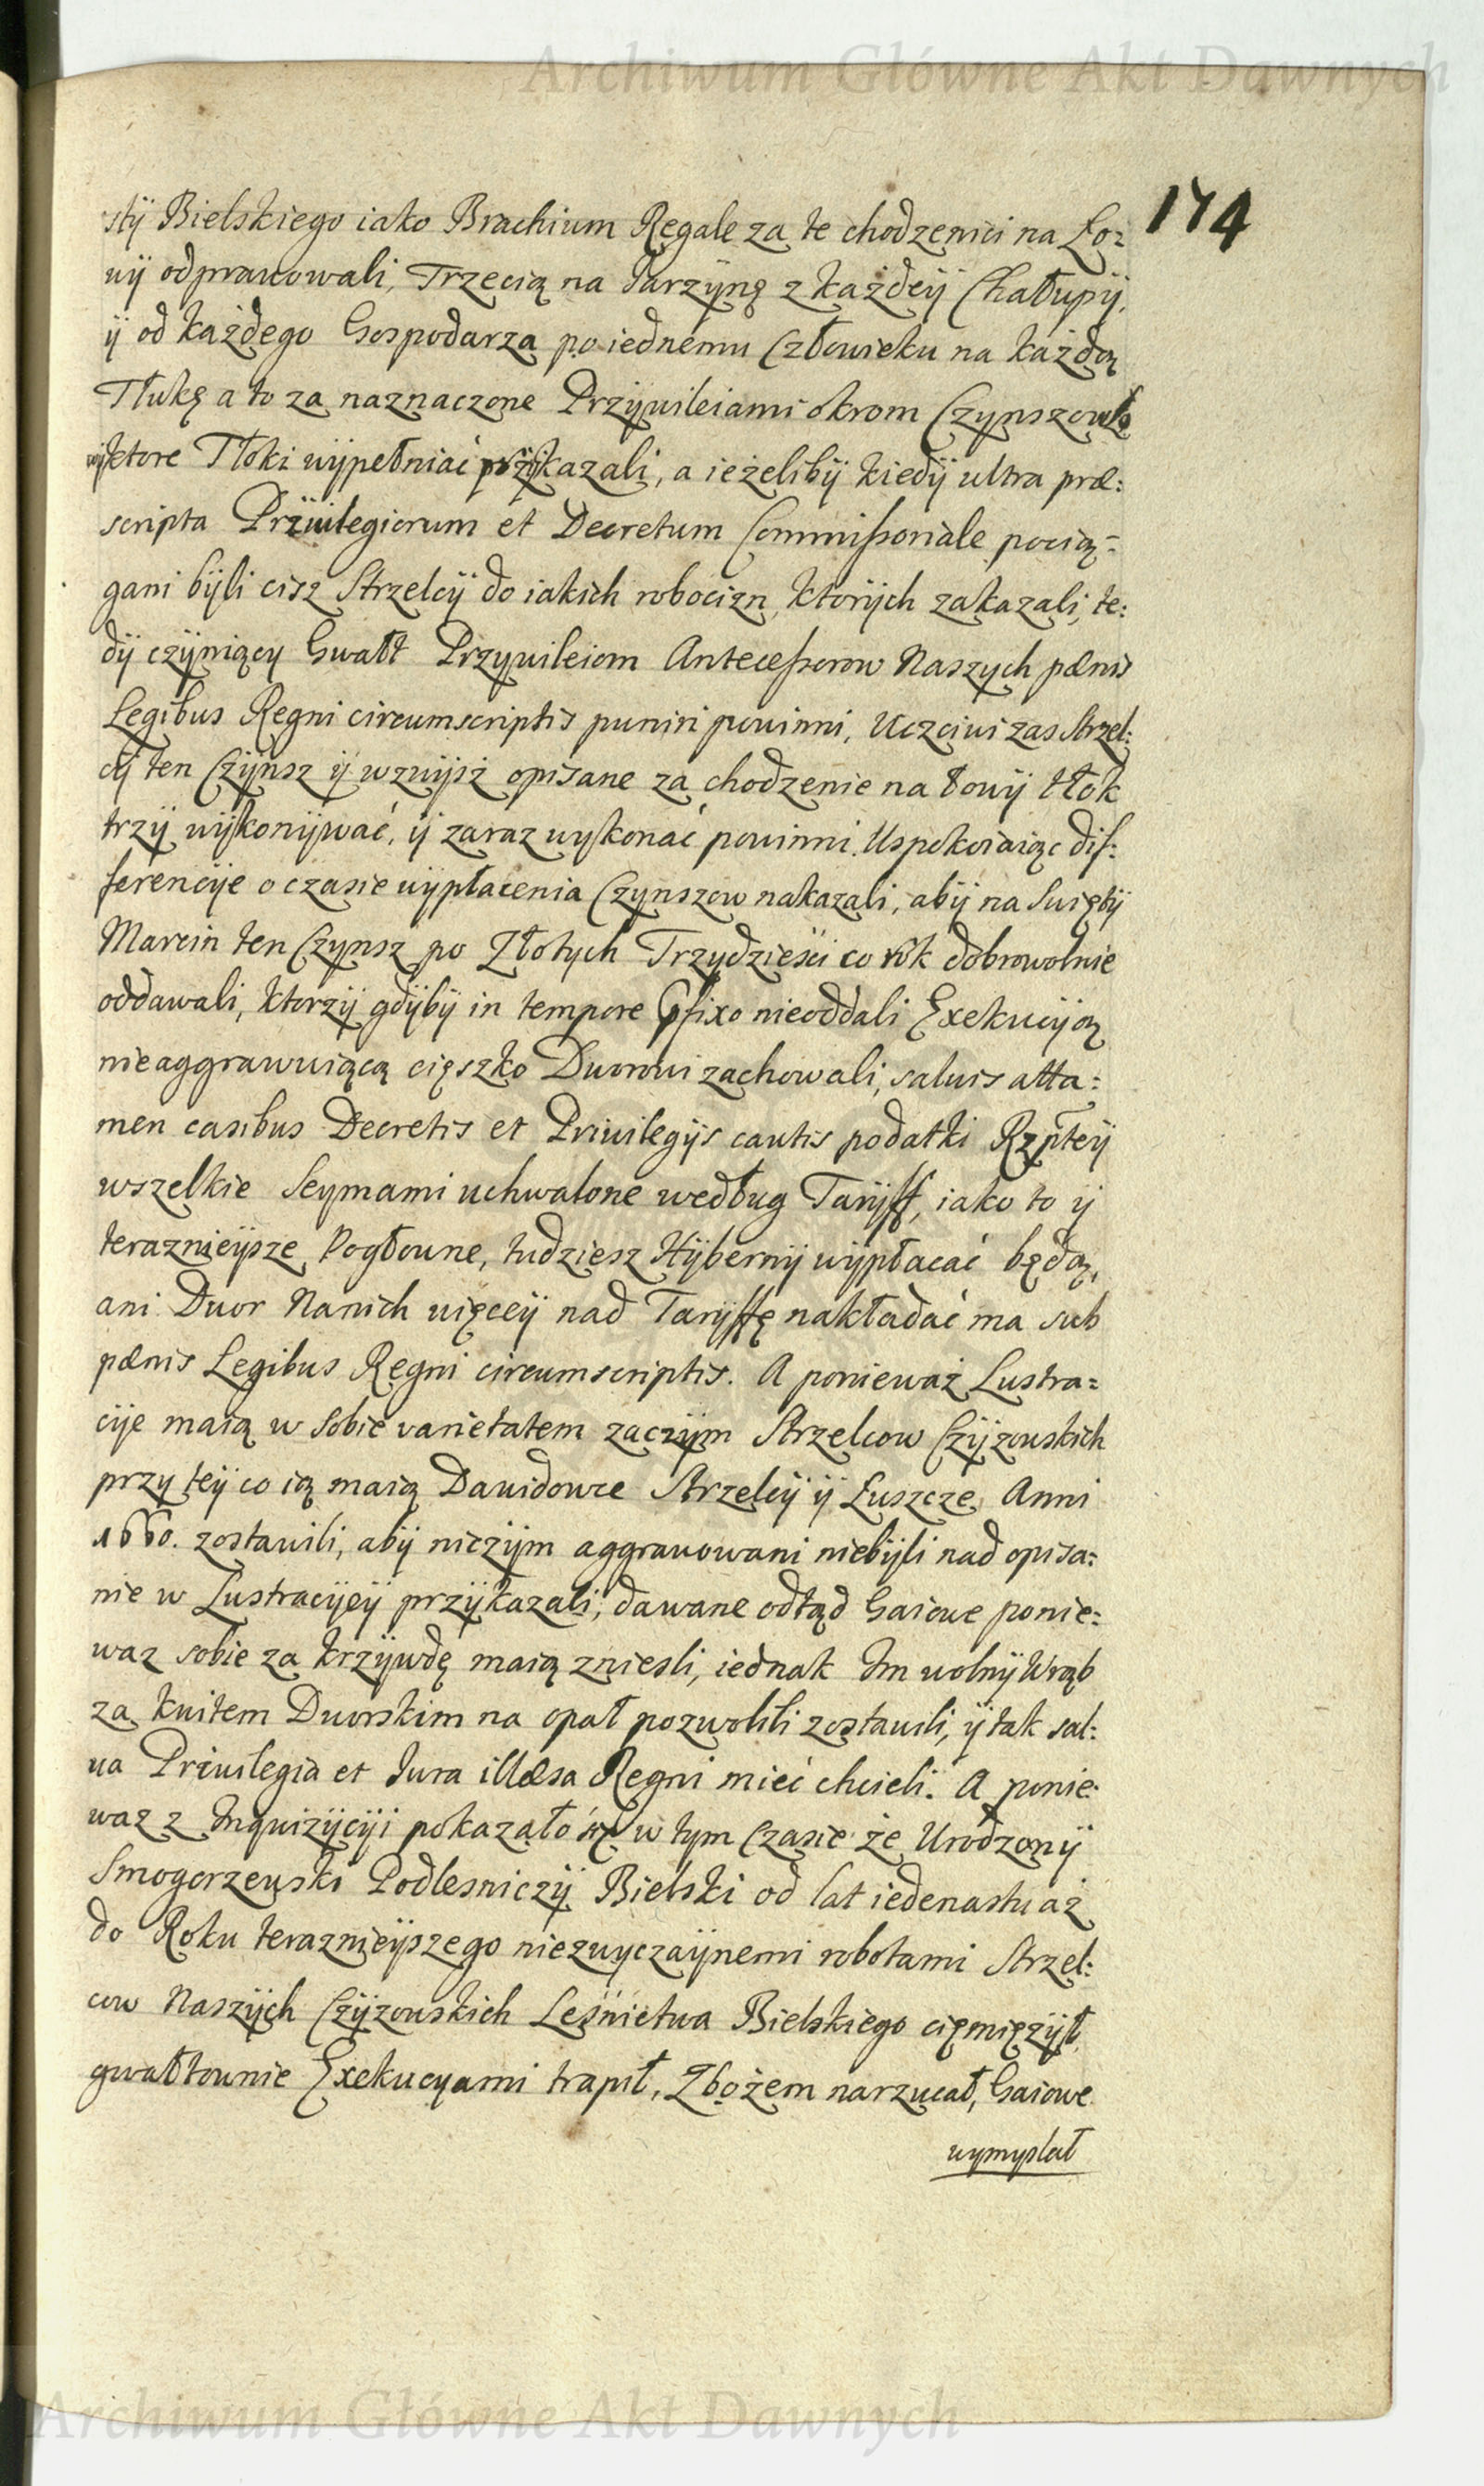 Archiwum Główne Akt Dawnych
174
sty Bielskiego iako Brachium Regale za te chodzenici na Ło:
wÿ odprawowali, Trzecią na Jarzÿnę z każdeÿ Chałupÿ,
ÿ od każdego Gospodarza po iednemu Człowieku na każdą
Tłukę a to za naznaczone Przÿwileiami okrom Czynszowe
ktore Tłoki wÿpełniać przÿkazali, a ieżelibÿ kiedÿ ultra præ:
scripta Priuilegiorum et Decretum Commißoriale pocią:
gani bÿli cisz Strzelcÿ do iakich robocizn, ktorÿch zakazali, te:
dÿ czÿniący Gwałt Przywileiom Anteceßorow Naszych pænis
Legibus Regni circumscriptis puniri powinni, Uczciwi zas Strzel:
cÿ ten Czÿnsz ÿ wzwÿsz opisane za chodzenie na łowÿ tłok
trzÿ wÿkonÿwać, ÿ zaraz wykonać powinni. Uspokoiaiąc dif:
ferencÿe o czasie wÿpłacenia Czynszow nakazali, abÿ na Swiętÿ
Marcin ten Czynsz po Złotych Trzydziesci co rok dobrowolnie
oddawali, ktorzÿ gdÿbÿ in tempore pfixo nieoddali Exekucÿą
nieaggrawuiącą cięszko Dworowi zachowali, saluis atta:
men casibus Decretis et Priuilegÿs cautis podatki Rzpteÿ
wszelkie Seymami uchwalone według Tarÿff, iako to ÿ
teraznieÿsze Pogłowne, tudziesz Hÿbernÿ wÿpłacać będą,
ani Dwor Nanich więceÿ nad Tarÿffę nakładać ma sub
pænis Legibus Regni circumscriptis. A ponieważ Lustra:
cÿe maią w sobie varietatem zaczÿm Strzelcow Czÿzowskich
przy teÿ co ią maią Dawidowce Strzelcÿ ÿ Łuszcze Anni
1660. zostawili, abÿ niczÿm aggrawowani niebÿli nad opisa:
nie w Lustracÿeÿ przÿkazali, dawane odtąd Gaiowe ponie:
waz sobie za krzÿwdę maią zniesli, iednak Im wolnÿ Wrąb
za kwitem Dworskim na opał pozwolili zostawili, ÿ tak sal:
ua Priuilegia et Jura illæsa Regni mieć chcieli. A ponie:
waz z Inquizÿcÿi pokazało się w tym Czasie że Urodzonÿ
Smogorzewski Podlesniczÿ Bielski od lat iedenastu aż
do Roku teraznieÿszego niezwyczaÿnemi robotami Strzel:
cow Naszÿch Czÿzowskich Leśnictwa Bielskiego ciemięzÿł,
gwałtownie Exekucyami trapił, Zbożem narzucał, Gaiowe
wymyslał
Archiwum Główne Akt Dawnych